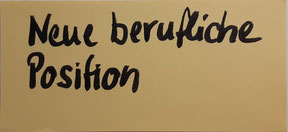 Neue berufliche
Position